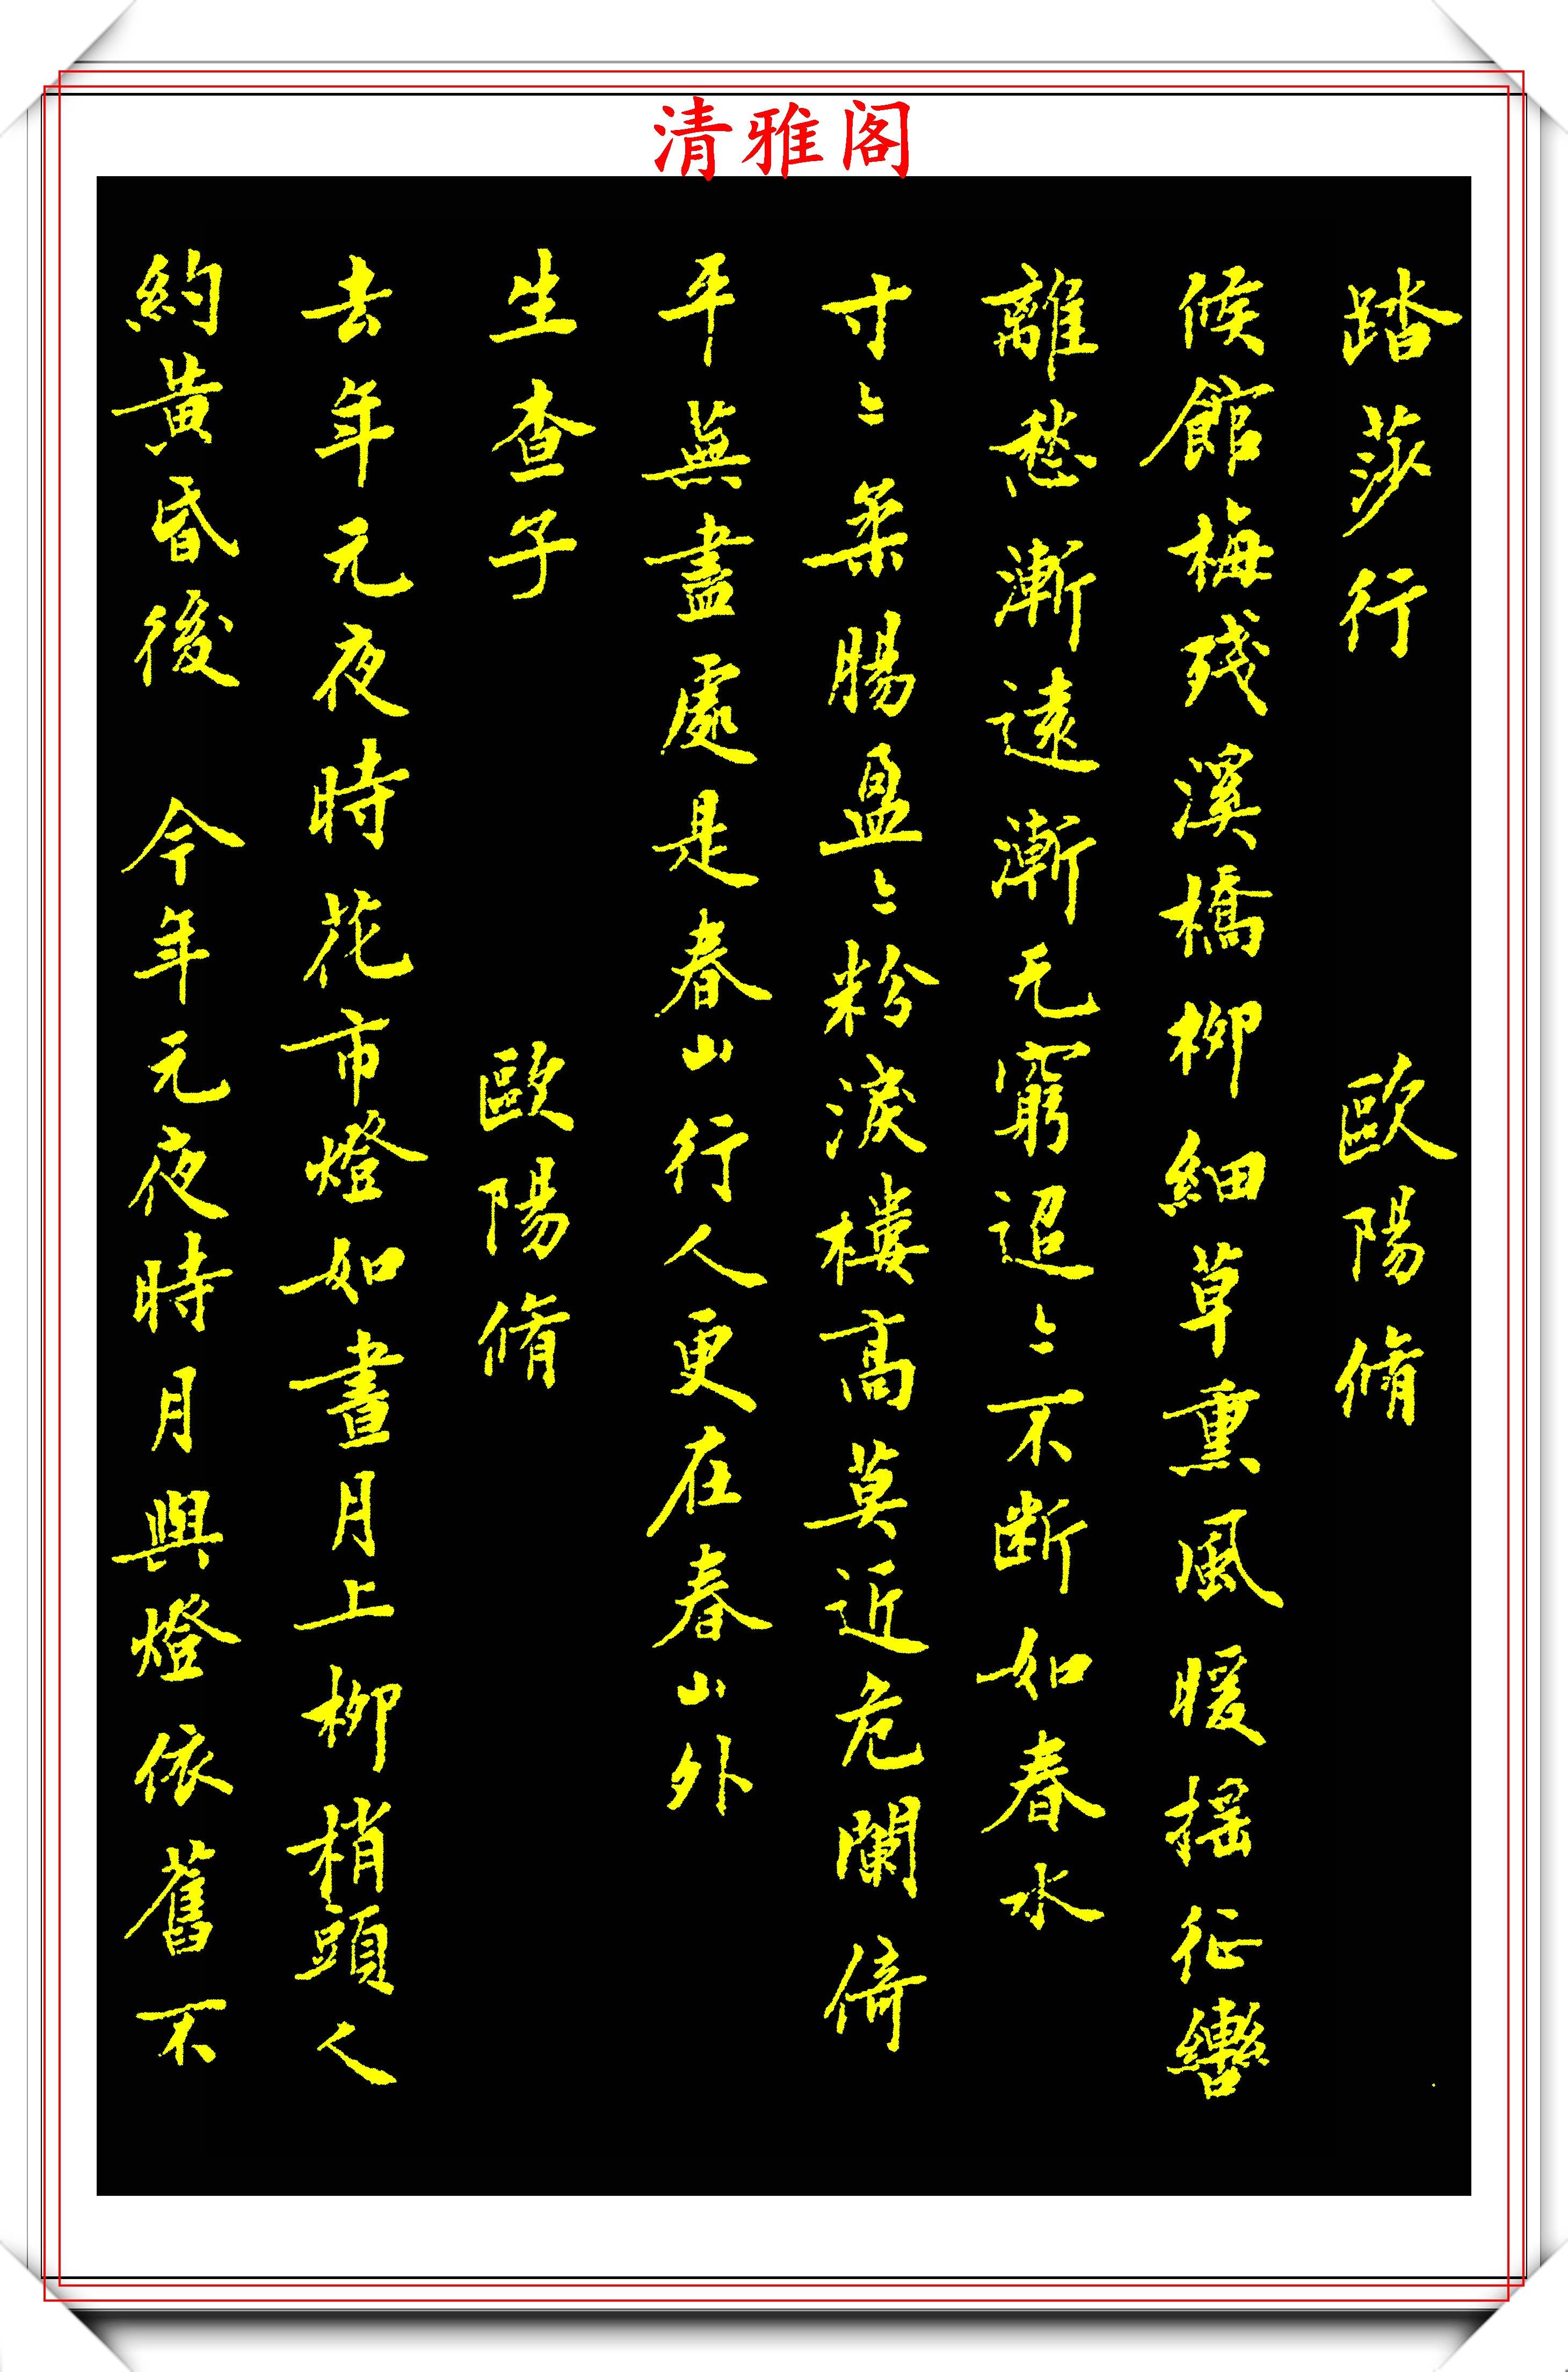 清雅阁
踏莎行 歐陽脩
候館梅殘溪橋柳細草熏風暖摇征轡
離愁漸遠漸无窮迢〻不断如春水
寸〻柔腸盈〻粉淚樓高莫近危闌倚
平蕪盡處是春山行人更在春山外
生查子 歐陽脩
去年元夜時花市燈如晝月上柳梢頭人
約黄昏後 今年元夜時月與燈依舊不